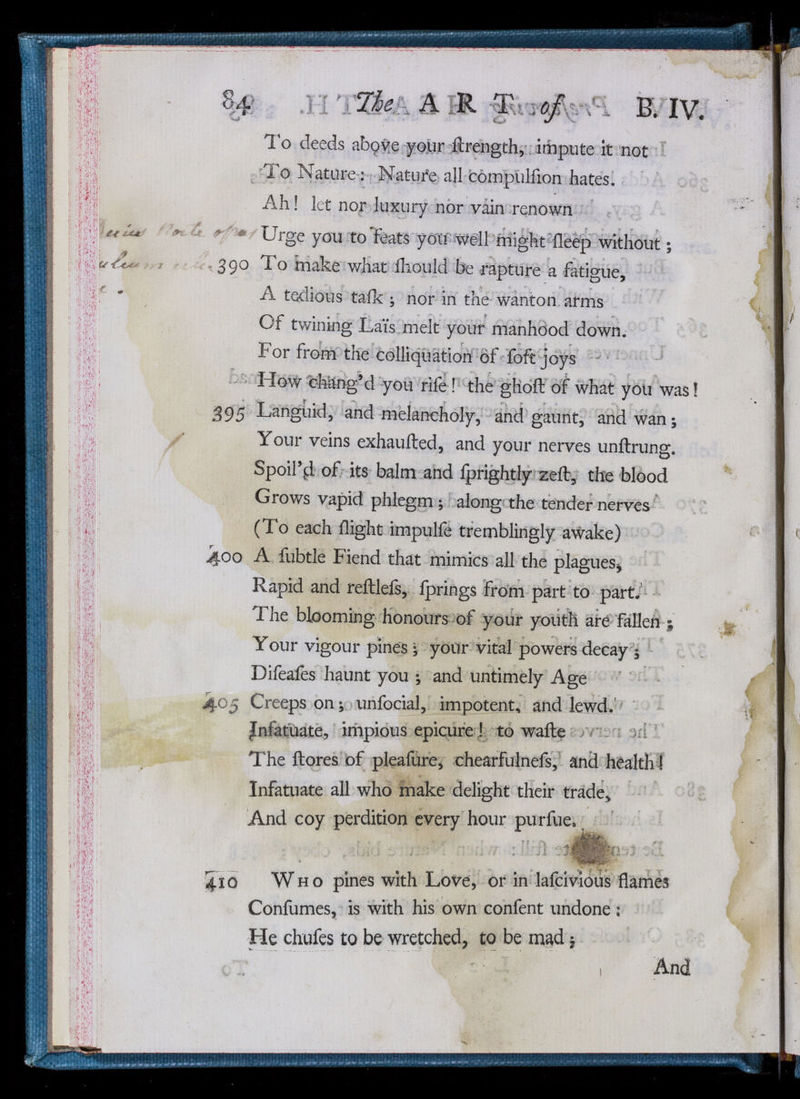 84 The ART of B. IV.
To deeds above your ſtrength, impute it not
To Nature: Nature all compulſion hates.
Ah! let nor luxury nor vain renown
Urge you to feats you well might ſleep without;
390 To make what ſhould be rapture a fatigue,
A tedious taſk; nor in the wanton arms
Of twining Laïs melt your manhood down.
For from the colliquation of ſoft joys
How chang'd you riſe! the ghoſt of what you was!
395 Languid, and melancholy, and gaunt, and wan;
Your veins exhauſted, and your nerves unſtrung.
Spoil'd of its balm and ſprightly zeſt, the blood
Grows vapid phlegm; along the tender nerves
(To each ſlight impulſe tremblingly awake)
400 A ſubtle Fiend that mimics all the plagues,
Rapid and reſtleſs, ſprings from part to part.
The blooming honours of your youth are fallen;
Your vigour pines; your vital powers decay;
Diſeaſes haunt you; and untimely Age
405 Creeps on; unſocial, impotent, and lewd.
Infatuate, impious epicure! to waſte
The ſtores of pleaſure, chearfulneſs, and health!
Infatuate all who make delight their trade,
And coy perdition every hour purſue.
410 WHO pines with Love, or in laſcivious flames
Conſumes, is with his own conſent undone:
He chuſes to be wretched, to be mad;
And